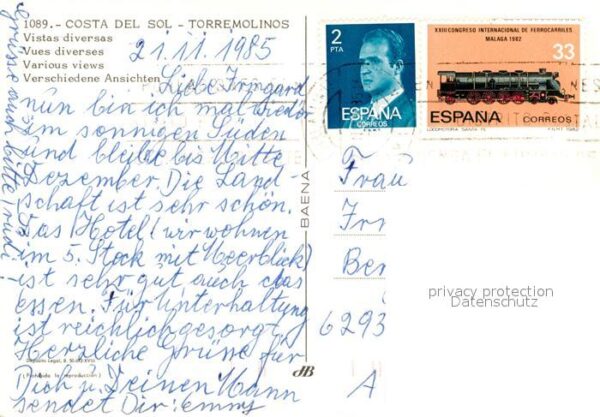 1089.- COSTA DEL SOL - TORREMOLINOS
Vistas diversas
Vues diverses
Various views
Verschiedene Ansichten
21.11.1985
Liebe Irmgard
nun bin ich mal wieder
im sonnigen Süden
und bleibe bis Mitte
Dezember. Die Land-
schaft ist sehr schön.
Das Hotel (wir wohnen
im 5. Stock mit Meerblick)
ist sehr gut auch das
essen. Für Unterhaltung
ist reichlich gesorgt.
Herzliche Grüße für
Dich u. Deinen Mann
sendet Dir: emmy
Grüsse auch bitte
BAENA
(Prohibida la reproducción)
2
PTA
ESPAÑA
CORREOS
XXIII CONGRESO INTERNACIONAL DE FERROCARRILES
MALAGA 1982
33
ESPAÑA
CORREOS
LOCOMOTORA SANTA FE
F.N.M.T. 1982
Frau
Irm
Ber
6293
A
privacy protection
Datenschutz